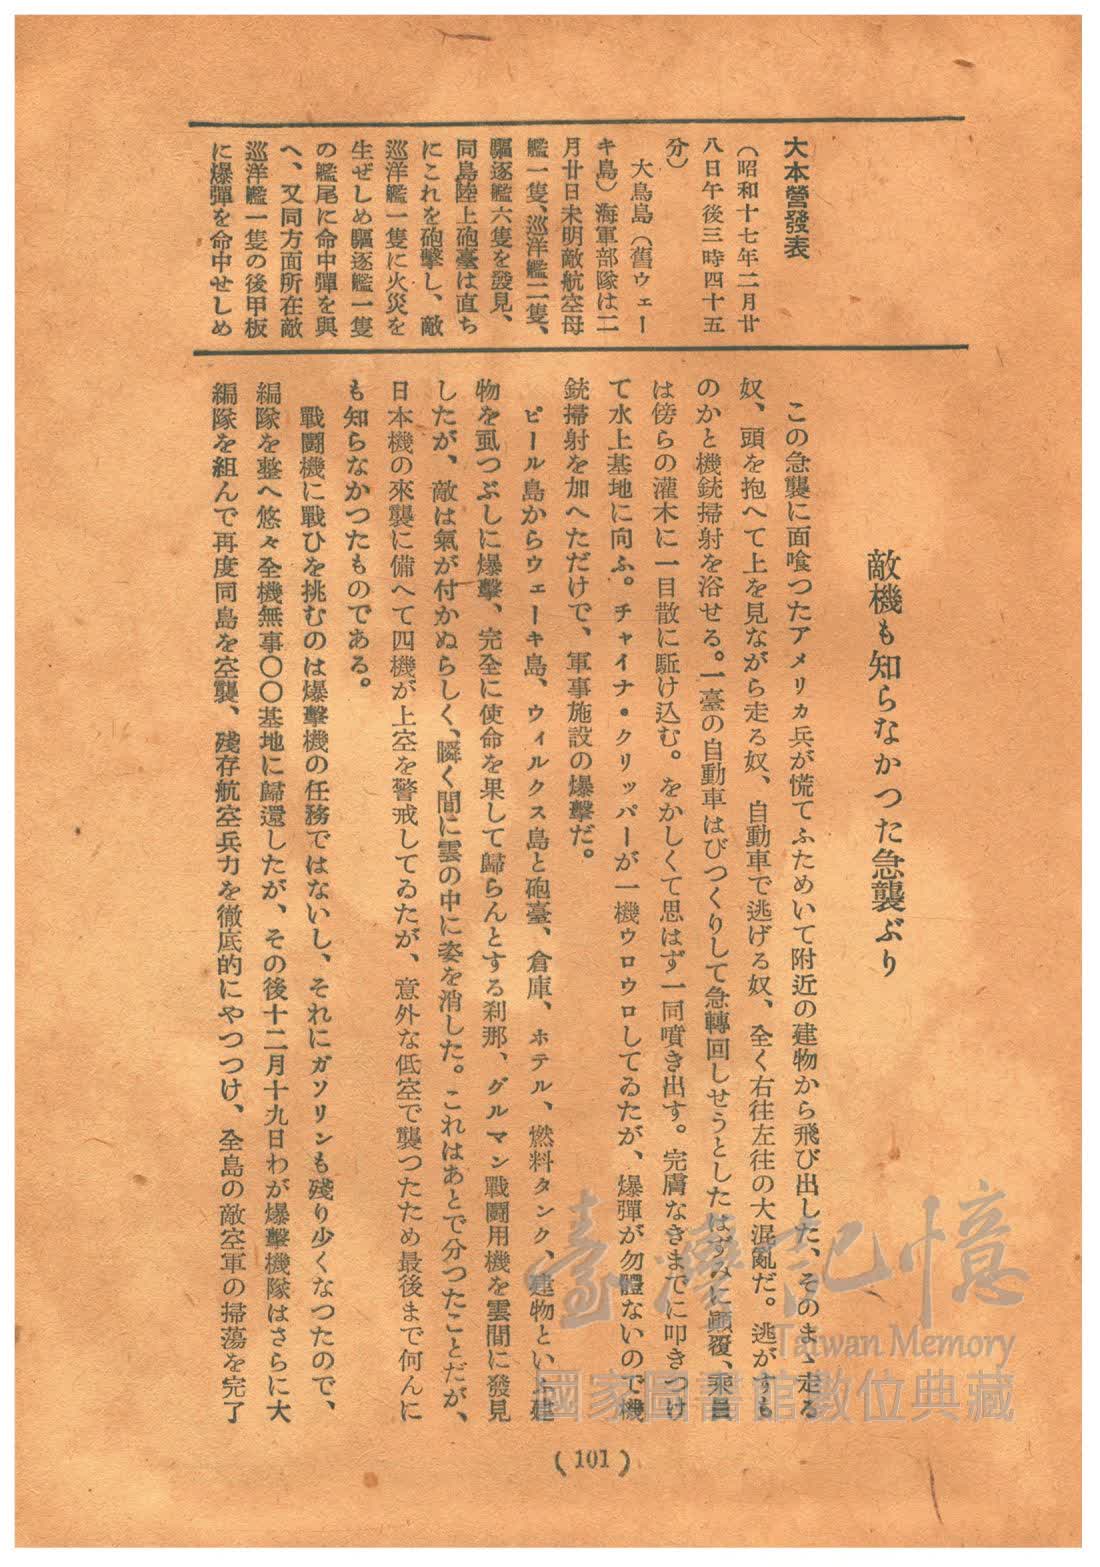 大本營發表
（昭和十七年二月廿
八日午後三時四十五
分）
大鳥島（舊ウェー
キ島）海軍部隊は二
月廿日未明敵航空母
艦一隻、巡洋艦二隻、
驅逐艦六隻を發見、
同島陸上砲臺は直ち
にこれを砲擊し、敵
巡洋艦一隻に火災を
生ぜしめ驅逐艦一隻
の艦尾に命中彈を與
へ、又同方面所在敵
巡洋艦一隻の後甲板
に爆彈を命中せしめ
敵機も知らなかつた急襲ぶり
この急襲に面喰つたアメリカ兵が慌てふためいて附近の建物から飛び出した、そのまゝ走る
奴、頭を抱へて上を見ながら走る奴、自動車で逃げる奴、全く右往左往の大混亂だ。逃がすも
のかと機銃掃射を浴せる。一臺の自動車はびつくりして急轉回しせうとしたはずみに顚覆、乘員
は傍らの灌木に一目散に駈け込む。をかしくて思はず一同噴き出す。完膚なきまでに叩きつけ
て水上基地に向ふ。チャイナ・クリッパーが一機ウロウロしてゐたが、爆彈が勿體ないので機
銃掃射を加へただけで、軍事施設の爆擊だ。
ピール島からウェーキ島、ウィルクス島と砲臺、倉庫、ホテル、燃料タンク、建物といふ建
物を虱つぶしに爆擊、完全に使命を果して歸らんとする刹那、グルマン戰鬪用機を雲間に發見
したが、敵は氣が付かぬらしく、瞬く間に雲の中に姿を消した。これはあとで分つたことだが、
日本機の來襲に備へて四機が上空を警戒してゐたが、意外な低空で襲つたため最後まで何んに
も知らなかつたものである。
戰鬪機に戰ひを挑むのは爆擊機の任務ではないし、それにガソリンも殘り少くなつたので、
編隊を整へ悠々全機無事〇〇基地に歸還したが、その後十二月十九日わが爆擊機隊はさらに大
編隊を組んで再度同島を空襲、殘存航空兵力を徹底的にやつつけ、全島の敵空軍の掃蕩を完了
(101)
臺灣記憶
Taiwan Memory
國家圖書館數位典藏